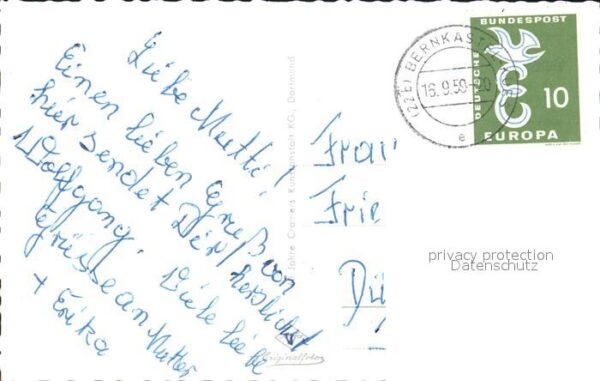 Liebe Mutti!
Einen lieben Gruß von
hier sendet Dir herzlichst
Wolfgang. Viele liebe
Grüße an Mutter
+ Erika
Jahre Cramers Kunstanstalt KG., Dortmund
Originalfoto
(22c) BERNKASTEL
16.9.59
e
DEUTSCHE
BUNDESPOST
10
EUROPA
Frau
Frie
Dü
privacy protection
Datenschutz